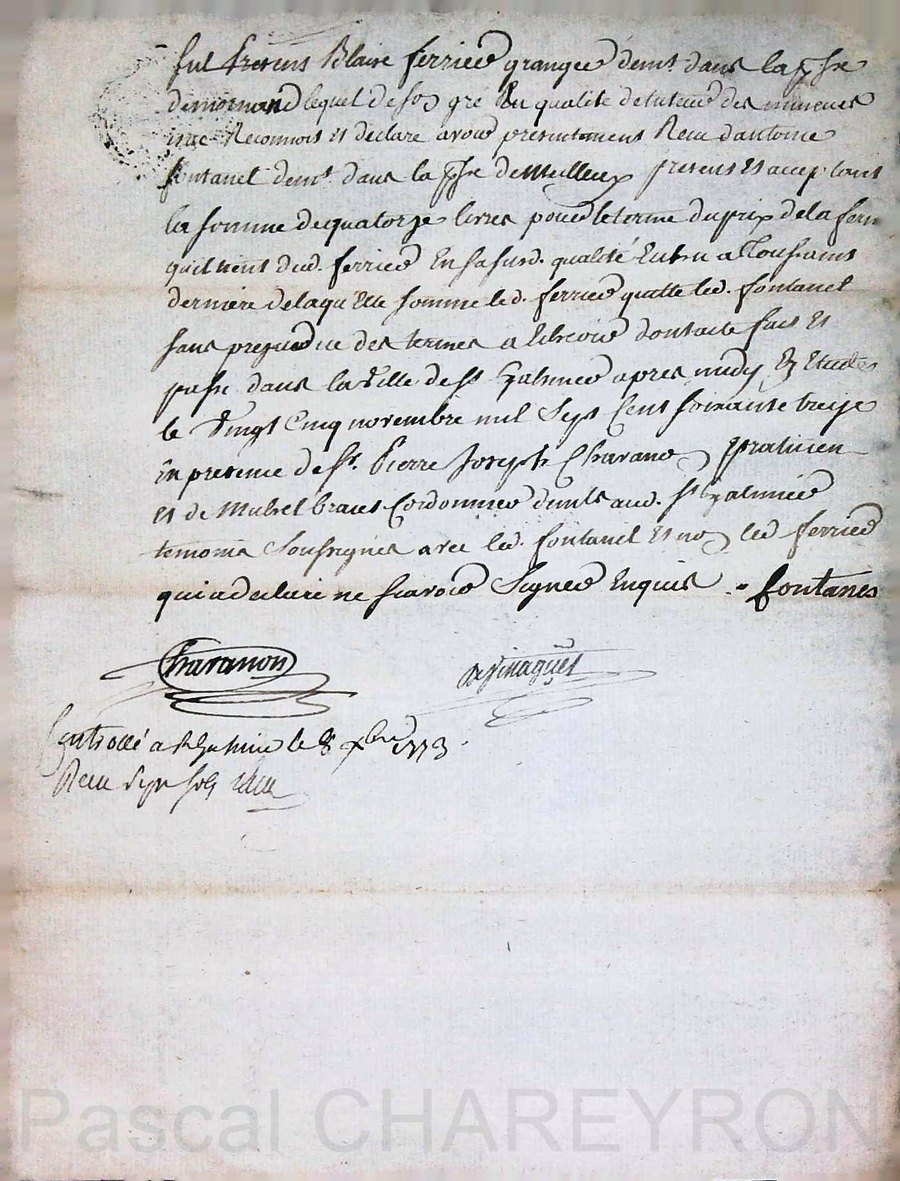 fut present Blaise ferrier granger demt dans la psse
de mornand lequel de son gré En qualité de tuteur des mineurs
Reconnois et declare avoir presentement Receu dantoine
fontanel demt dans la psse de Meilleux present et acceptant
la somme de quatorze livres pour le terme du prix de la ferm
quil tient dud. ferrier En sa susd. qualité Echu a Toussaints
derniere de laquelle somme led. ferrier quitte led. fontanel
sans prejudice des termes a Echeoir dont acte fait et
passé dans la Ville de St Galmier apres midy Es Etudes
le Vingt Cinq novembre mil Sept Cent Soixante treize
En presence de Sr. Pierre Joseph Charanon praticien
et de Cordonnier demts aud. St Galmier
temoins Soussignés avec led. fontanel et non led ferrier
qui a declaré ne scavoir Signer Enquis fontanes
Charanon
Controllé a St Galmier le 8 xbre 1773
Receu sept sols
Pascal CHAREYRON